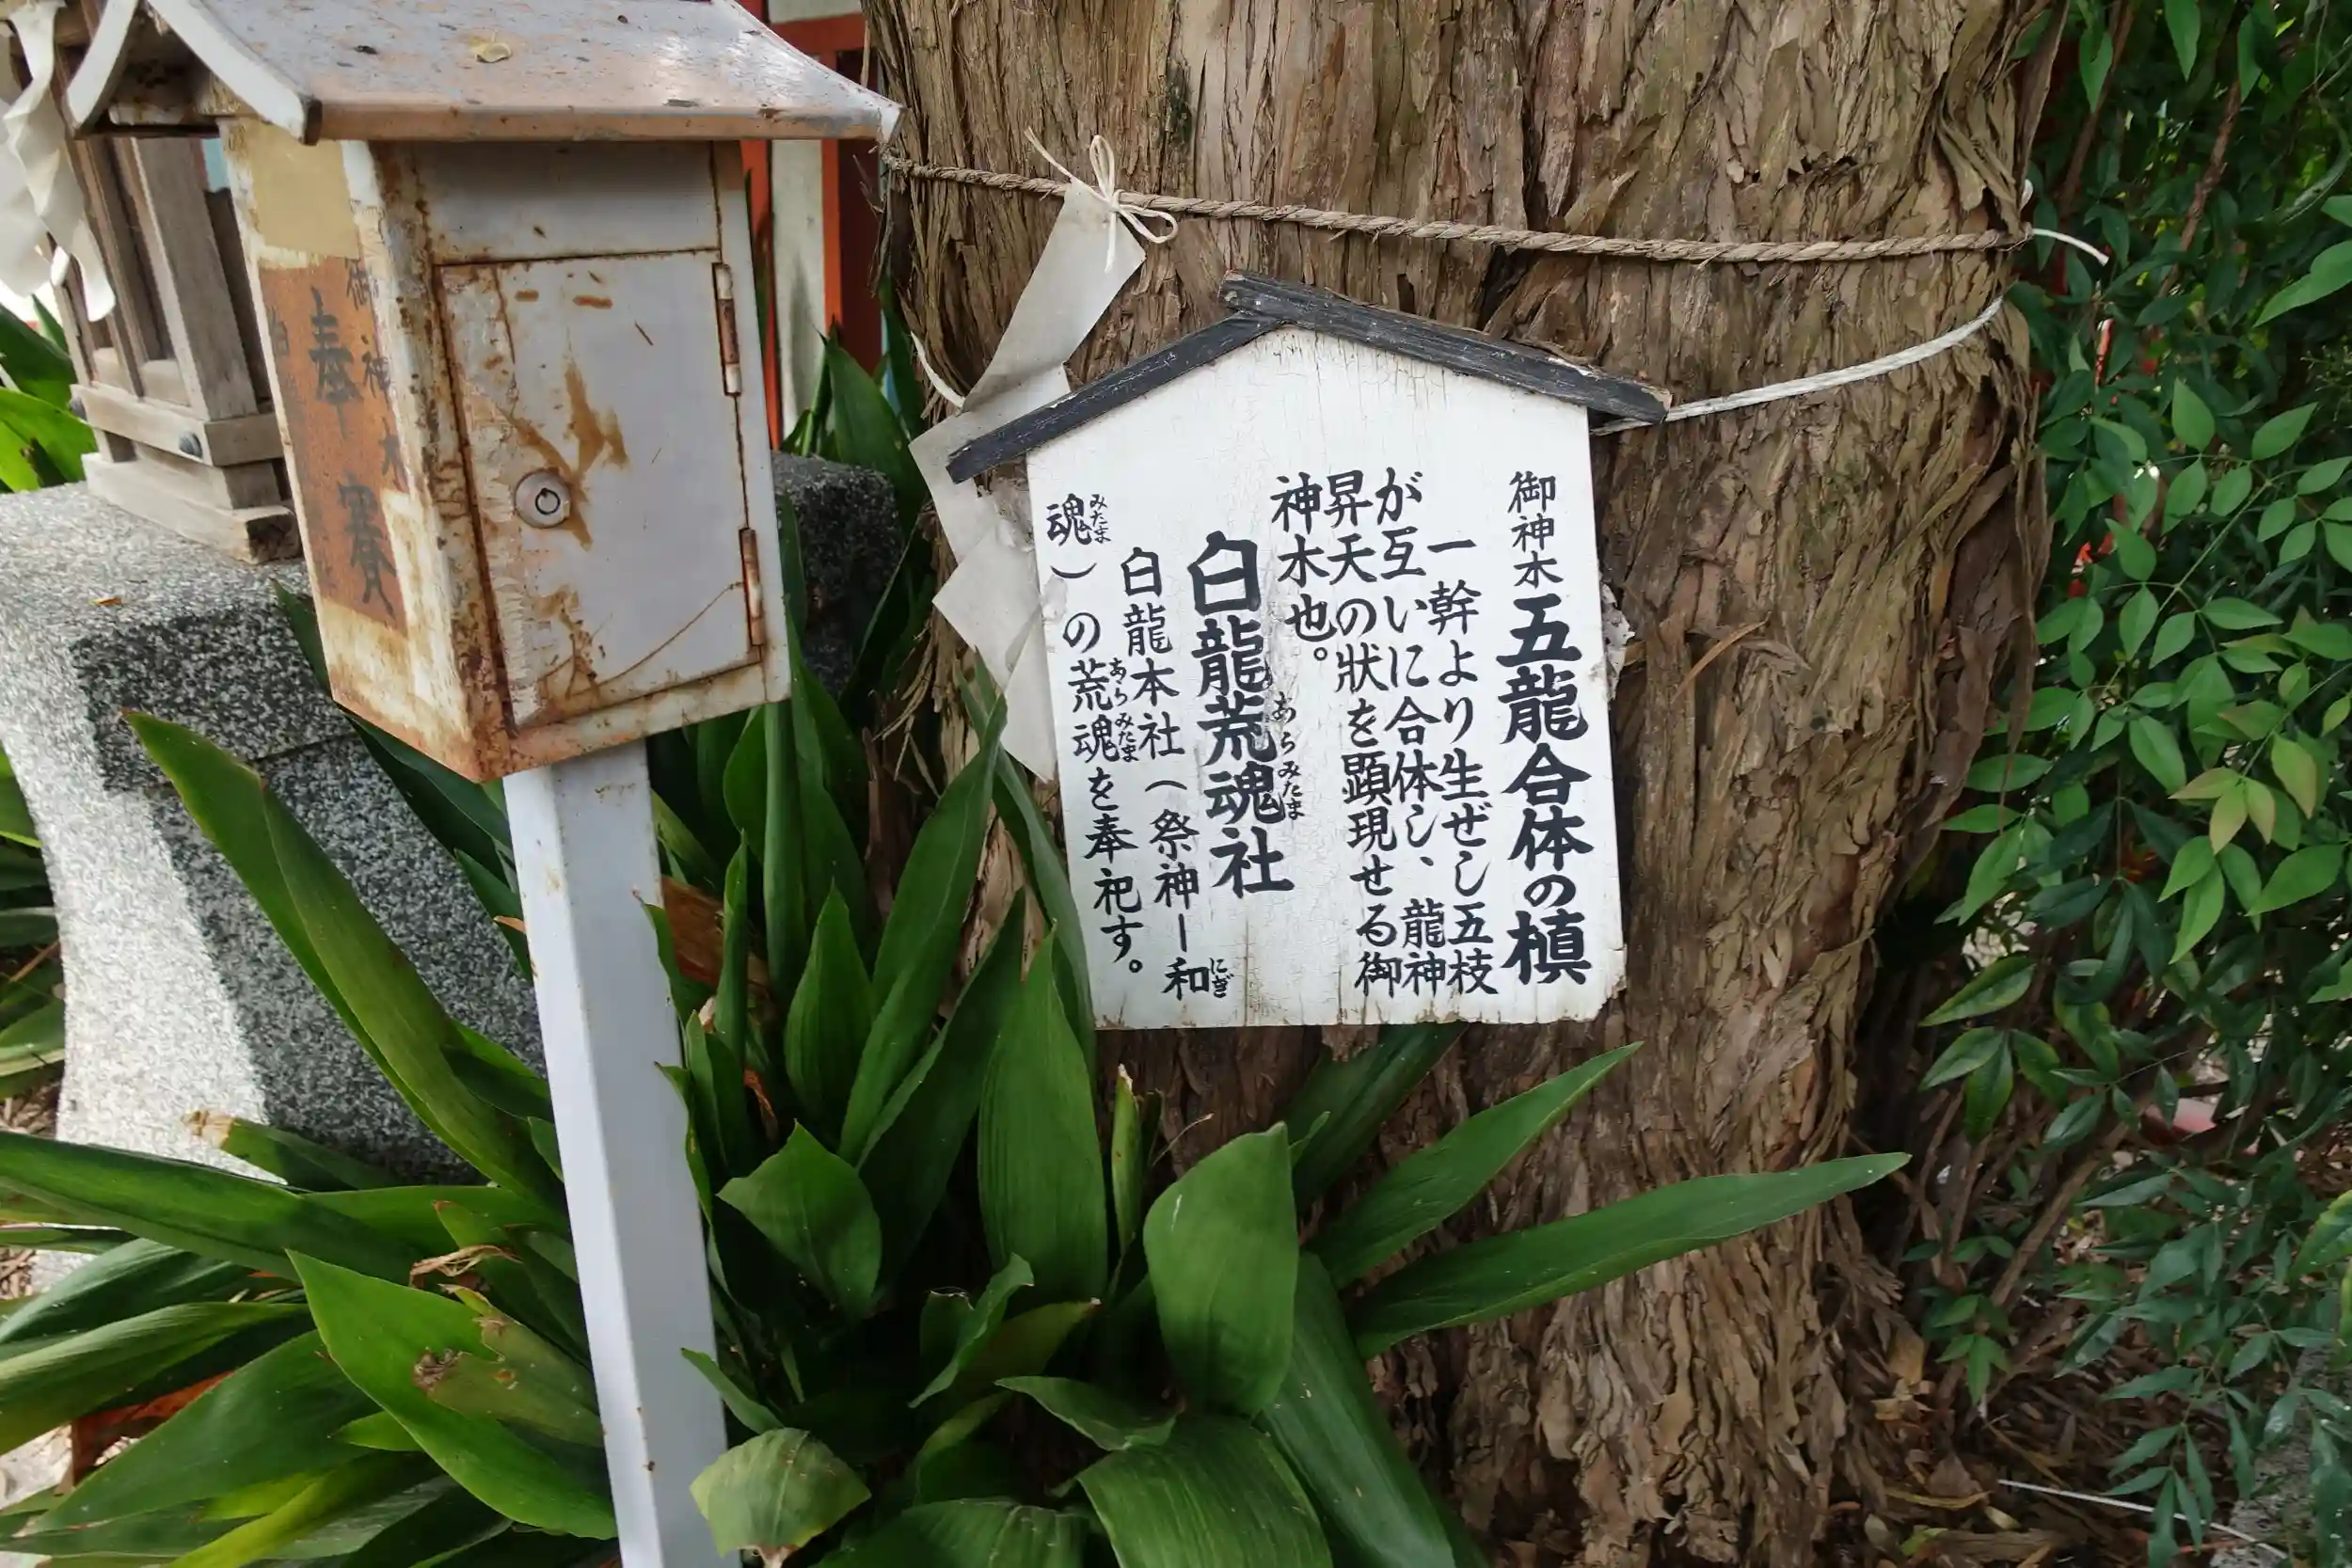 御神木五龍合体の槙
一幹より生ぜし五枝
が互いに合体し、龍神
昇天の状を顕現せる御
神木也。
白龍荒魂社
あらみたま
白龍本社（祭神ー和
にぎ
魂）の荒魂を奉祀す。
みたま
あらみたま
御神木
奉賽